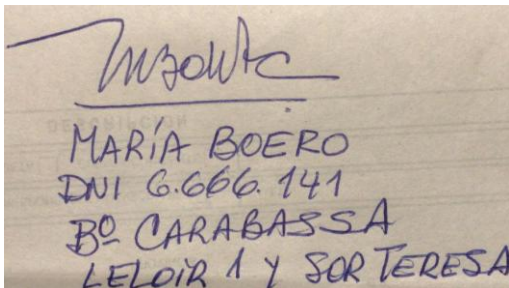 MARÍA BOERO
DNI 6.666.141
Bº CARABASSA
LELOIR 1 Y SOR TERESA